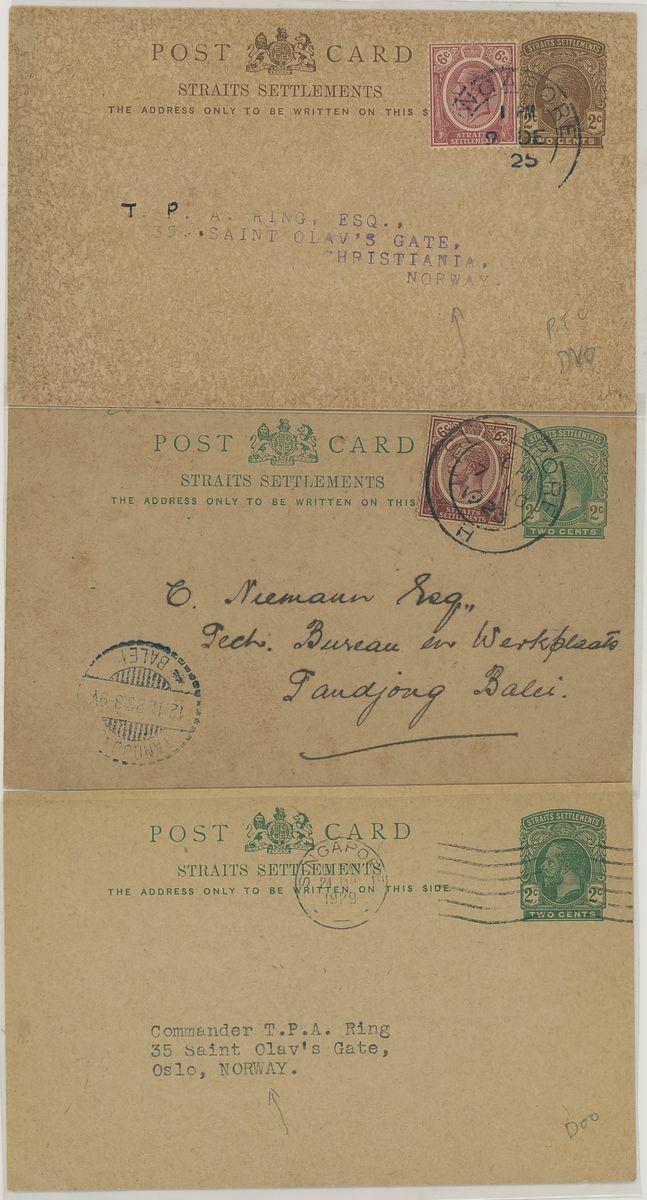 POST CARD
STRAITS SETTLEMENTS
THE ADDRESS ONLY TO BE WRITTEN ON THIS S
6c 6c
STRAITS
SETTLEMENTS
STRAITS SETTLEMENTS
2c 2c
TWO CENTS
1 PM
DE
25
T. P. A. RING, ESQ.,
35. SAINT OLAV'S GATE,
CHRISTIANIA,
NORWAY.
P.T.O
POST CARD
STRAITS SETTLEMENTS
THE ADDRESS ONLY TO BE WRITTEN ON THIS
6c 6c
STRAITS
SETTLEMENTS
STRAITS SETTLEMENTS
2c 2c
TWO CENTS
PORE
PM
7 NO
C. Niemann Esq,,
Tech. Bureau en Werkplaats
Tandjong Balei.
BALEI
12.11.23.8-9V
TANDJO
POST CARD
STRAITS SETTLEMENTS
THE ADDRESS ONLY TO BE WRITTEN ON THIS SIDE
STRAITS SETTLEMENTS
2c 2c
TWO CENTS
SINGAPORE
1929
Commander T.P.A. Ring
35 Saint Olav's Gate,
Oslo, NORWAY.